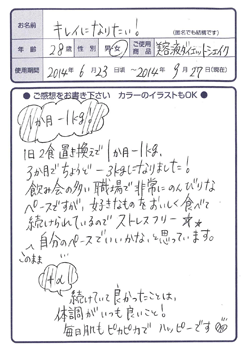 お名前 キレイになりたい! (匿名でも結構です)
年齢 28歳 性別 男・女 ご使用商品 美容液ダイエットシェイク
使用期間 2014年6月23日頃~2014年9月27日(現在)
●ご感想をお書き下さい カラーのイラストもOK●
1か月-1kg!
1日2食置き換えで1か月-1kg、
3か月でちょうど-3kgになりました!
飲み会の多い職場で非常にのんびりな
ペースですが、好きなものをおいしく食べて
続けられているのでストレスフリー★★
このまま自分のペースでいいかな、と思っています。
+α
続けていて良かったことは、
体調がいつも良いこと!
毎日肌もピカピカでハッピーです